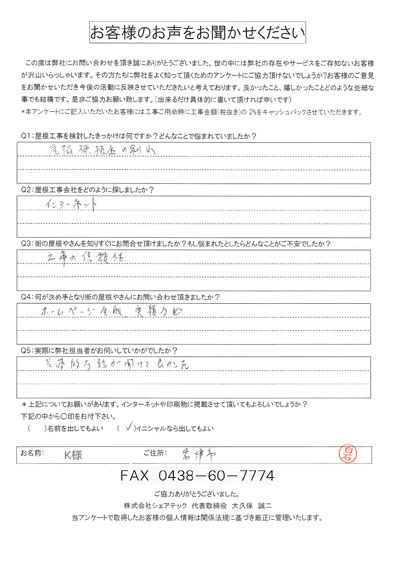 お客様のお声をお聞かせください
この度は弊社にお問い合わせを頂き誠にありがとうございました。世の中には弊社の存在やサービスをご存知ないお客様
が沢山いらっしゃいます。その方たちに弊社をよく知って頂くためのアンケートにご協力頂けないでしょうか?お客様のご意見
をお聞かせいただき今後の活動に反映させていただきたいと考えております。良かったこと、嬉しかったことどのような些細な
事でも結構です。是非ご協力お願い致します。(出来るだけ具体的に書いて頂ければ幸いです)
*本アンケートにご記入いただいたお客様には工事ご用命時に工事金額(税抜き)の2%をキャッシュバックさせていただきます。
Q1:屋根工事を検討したきっかけは何ですか?どんなことで悩まれていましたか?
棟板金の剥がれ
Q2:屋根工事会社をどのように探しましたか?
インターネット
Q3:街の屋根やさんを知りすぐにお問合せ頂けましたか?もし悩まれたとしたらどんなことがご不安でしたか?
工事の信頼性
Q4:何が決め手となり街の屋根やさんにお問い合わせ頂きましたか?
ホームページ全般 実績など
Q5:実際に弊社担当者がお伺いしていかがでしたか?
具体的な話が聞けて良かった
*上記についてお願いがあります。インターネットや印刷物に掲載させて頂いてもよろしいでしょうか?
下記の中から〇印をお付下さい。
( )名前を出してもよい ( ✓ )イニシャルなら出してもよい
お名前: K様 ご住所: 君津市 白石
FAX 0438-60-7774
ご協力ありがとうございました。
株式会社シェアテック 代表取締役 大久保 誠二
当アンケートで取得したお客様の個人情報は関係法規に基づき厳正に管理いたします。